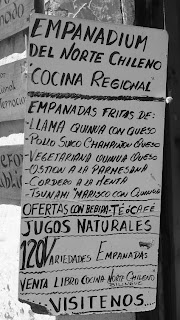 EMPANADIUM
DEL NORTE CHILENO
COCINA REGIONAL
EMPANADAS FRITAS DE:
- LLAMA QUINUA CON QUESO
- POLLO SUICO CHAMPIÑON QUESO
- VEGETARIANA QUINUA QUESO
- OSTION A LA PARMESANA
- CORDERO A LA MENTA
- TSUNAMI MARISCO CON QUINUA
OFERTAS CON BEBIDA-TÉ o CAFÉ
JUGOS NATURALES
120 VARIEDADES EMPANADAS
VENTA LIBRO COCINA NORTE CHILENO
BILINGUE
VISITENOS...